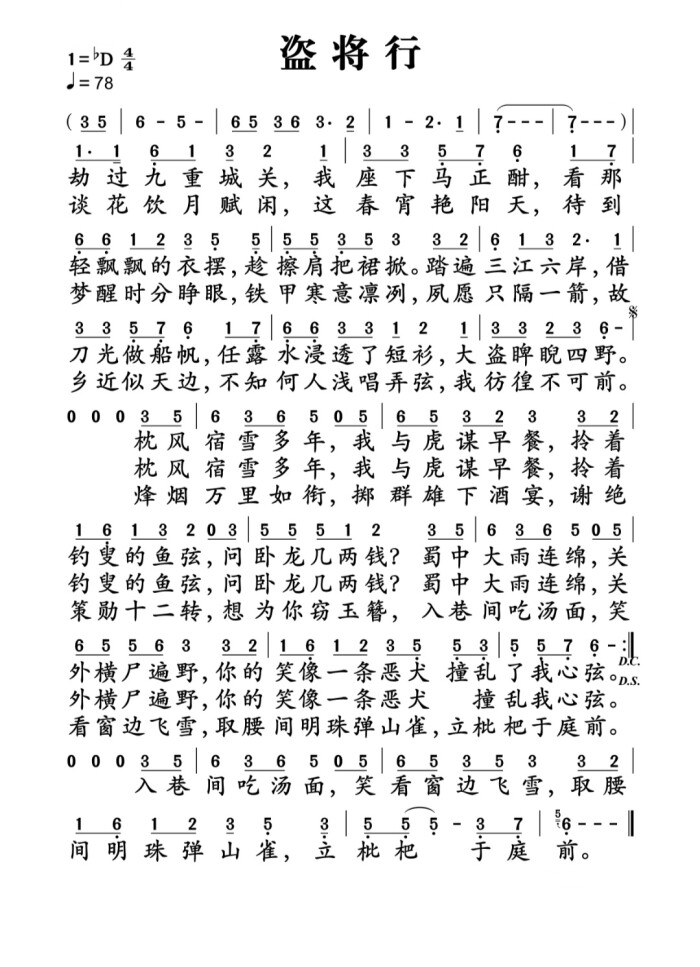 盗将行
1=♭D 4/4
♩=78
( 3 5 | 6 - 5 - | 6 5 3 6 3· 2 | 1 - 2· 1 | 7 - - - | 7 - - - ) |
1· 1 6 1 3 2 1 | 3 3 5 7 6 1 7 |
劫过九重城关，我座下马正酣，看那
谈花饮月赋闲，这春宵艳阳天，待到
6 6 1 2 3 5 5 | 5 5 3 5 3 3 2 | 6 1 3 2· 1 |
轻飘飘的衣摆，趁擦肩把裙掀。踏遍三江六岸，借
梦醒时分睁眼，铁甲寒意凛冽，夙愿只隔一箭，故
3 3 5 7 6 1 7 | 6 6 3 3 1 2 1 | 3 3 2 3 6 - |
刀光做船帆，任露水浸透了短衫，大盗睥睨四野。
乡近似天边，不知何人浅唱弄弦，我彷徨不可前。
0 0 0 3 5 | 6 3 6 5 0 5 | 6 5 3 2 3 3 2 |
枕风宿雪多年，我与虎谋早餐，拎着
枕风宿雪多年，我与虎谋早餐，拎着
烽烟万里如衔，掷群雄下酒宴，谢绝
1 6 1 3 2 0 3 | 5 5 5 1 2 3 5 | 6 3 6 5 0 5 |
钓叟的鱼弦，问卧龙几两钱？蜀中大雨连绵，关
钓叟的鱼弦，问卧龙几两钱？蜀中大雨连绵，关
策勋十二转，想为你窃玉簪，入巷间吃汤面，笑
6 5 5 6 3 3 2 | 1 6 1 2 3 5 5 3 | 5 5 7 6 - :||
外横尸遍野，你的笑像一条恶犬 撞乱了我心弦。D.C.
外横尸遍野，你的笑像一条恶犬 撞乱我心弦。D.S.
看窗边飞雪，取腰间明珠弹山雀，立枇杷于庭前。
0 0 0 3 5 | 6 3 6 5 0 5 | 6 5 3 5 3 3 2 |
入巷间吃汤面，笑看窗边飞雪，取腰
1 6 1 2 3 5 3 | 5 5 5 - 3 7 | 5 6 - - - ||
间明珠弹山雀，立枇杷 于庭前。